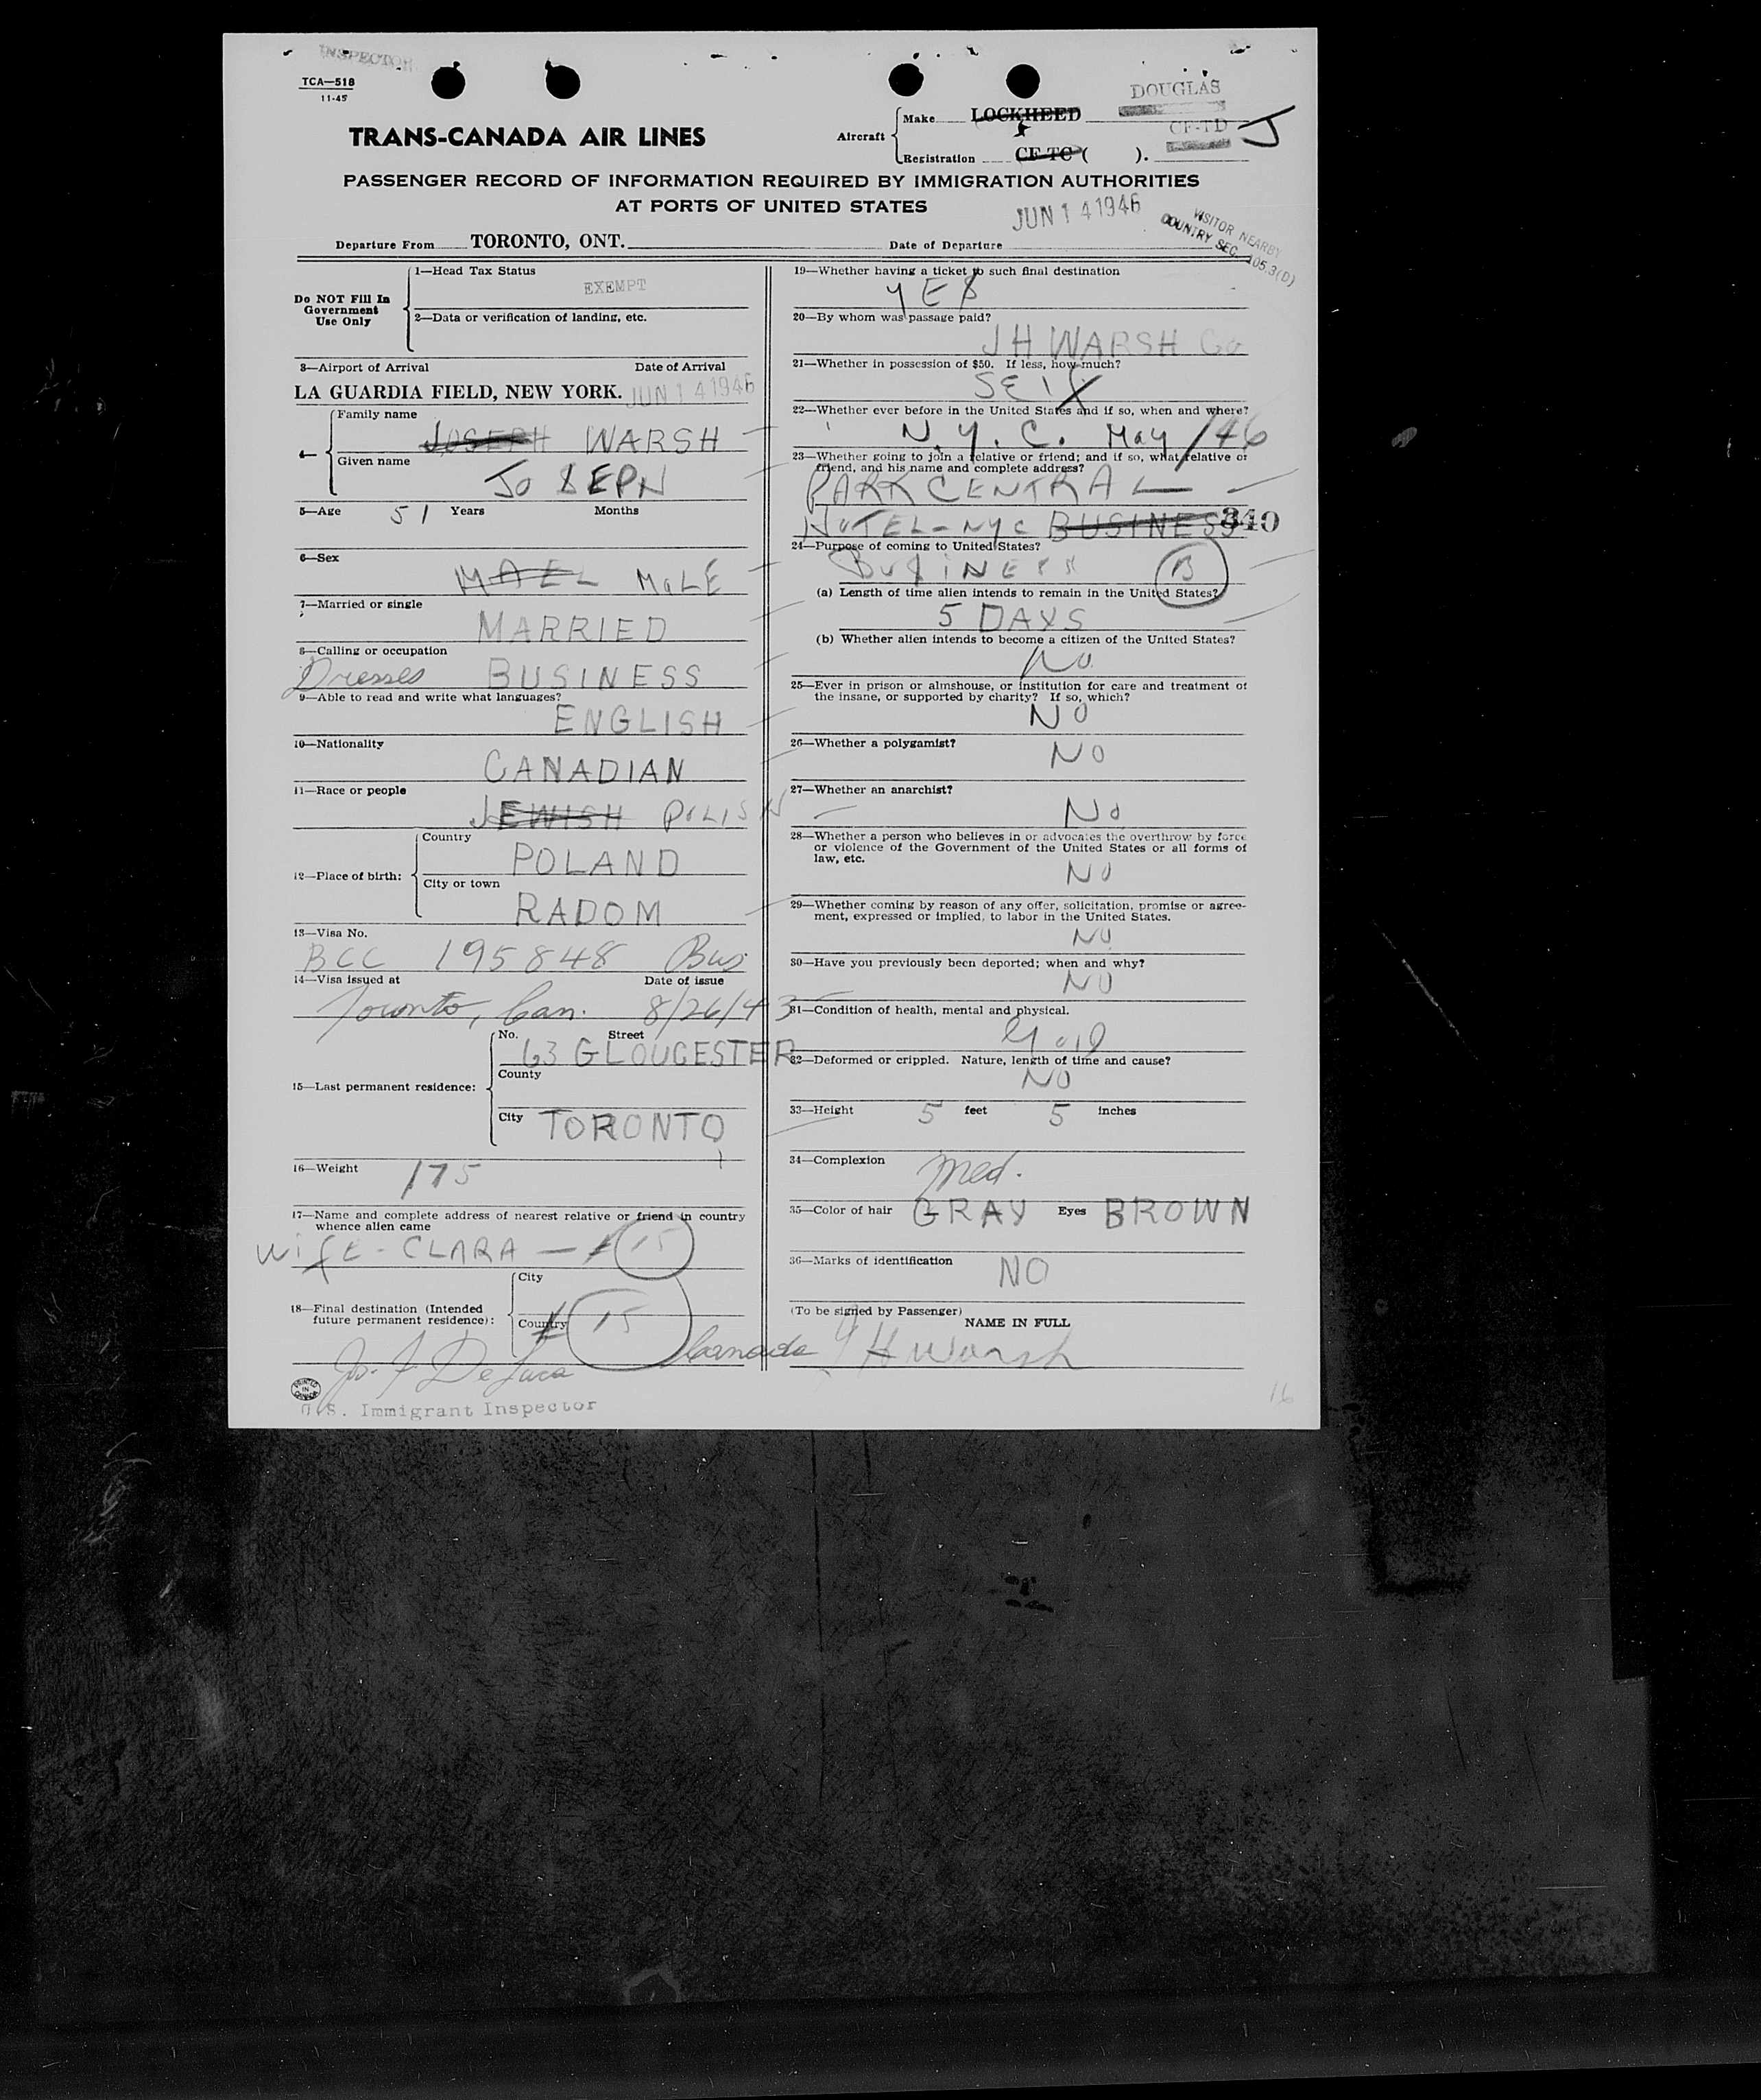 INSPECTOR
TCA—518
11-45
TRANS-CANADA AIR LINES
Aircraft
Make LOCKHEED
DOUGLAS
Registration CF-TC ( ).
CF-TD J
PASSENGER RECORD OF INFORMATION REQUIRED BY IMMIGRATION AUTHORITIES
AT PORTS OF UNITED STATES
JUN 14 1946
VISITOR NEARBY
COUNTRY SEC. 105.3(D)
Departure From TORONTO, ONT.
Date of Departure
Do NOT Fill In
Government
Use Only
1—Head Tax Status
EXEMPT
2—Data or verification of landing, etc.
3—Airport of Arrival Date of Arrival
LA GUARDIA FIELD, NEW YORK. JUN 14 1946
4—
Family name
JOSEPH WARSH
Given name
JOSEPH
5—Age 51 Years Months
6—Sex
MAEL MALE
7—Married or single
MARRIED
8—Calling or occupation
Dresses BUSINESS
9—Able to read and write what languages?
ENGLISH
10—Nationality
CANADIAN
11—Race or people
JEWISH POLISH
12—Place of birth:
Country
POLAND
City or town
RADOM
13—Visa No.
BCC 195848 Bus
14—Visa issued at Date of issue
Toronto, Can. 8/26/43
15—Last permanent residence:
No. Street
63 GLOUCESTER
County
City TORONTO
16—Weight 175
17—Name and complete address of nearest relative or friend in country
whence alien came
WIFE - CLARA — # 15
18—Final destination (Intended
future permanent residence):
City
Country # 15
Canada
Jos. F. DeLuca
PRINTED IN CANADA
U.S. Immigrant Inspector
19—Whether having a ticket to such final destination
YES
20—By whom was passage paid?
JH WARSH Co
21—Whether in possession of $50. If less, how much?
22—Whether ever before in the United States and if so, when and where?
N.Y.C. May/46
23—Whether going to join a relative or friend; and if so, what relative or
friend, and his name and complete address?
PARK CENTRAL
HOTEL - NYC BUSINESS 340
24—Purpose of coming to United States?
BUSINESS B
(a) Length of time alien intends to remain in the United States?
5 DAYS
(b) Whether alien intends to become a citizen of the United States?
No
25—Ever in prison or almshouse, or institution for care and treatment of
the insane, or supported by charity? If so, which?
NO
26—Whether a polygamist?
NO
27—Whether an anarchist?
No
28—Whether a person who believes in or advocates the overthrow by force
or violence of the Government of the United States or all forms of
law, etc.
NO
29—Whether coming by reason of any offer, solicitation, promise or agree-
ment, expressed or implied, to labor in the United States.
NO
30—Have you previously been deported; when and why?
NO
31—Condition of health, mental and physical.
Good
32—Deformed or crippled. Nature, length of time and cause?
NO
33—Height 5 feet 5 inches
34—Complexion Med.
35—Color of hair GRAY Eyes BROWN
36—Marks of identification
NO
(To be signed by Passenger)
NAME IN FULL
J H Warsh
16